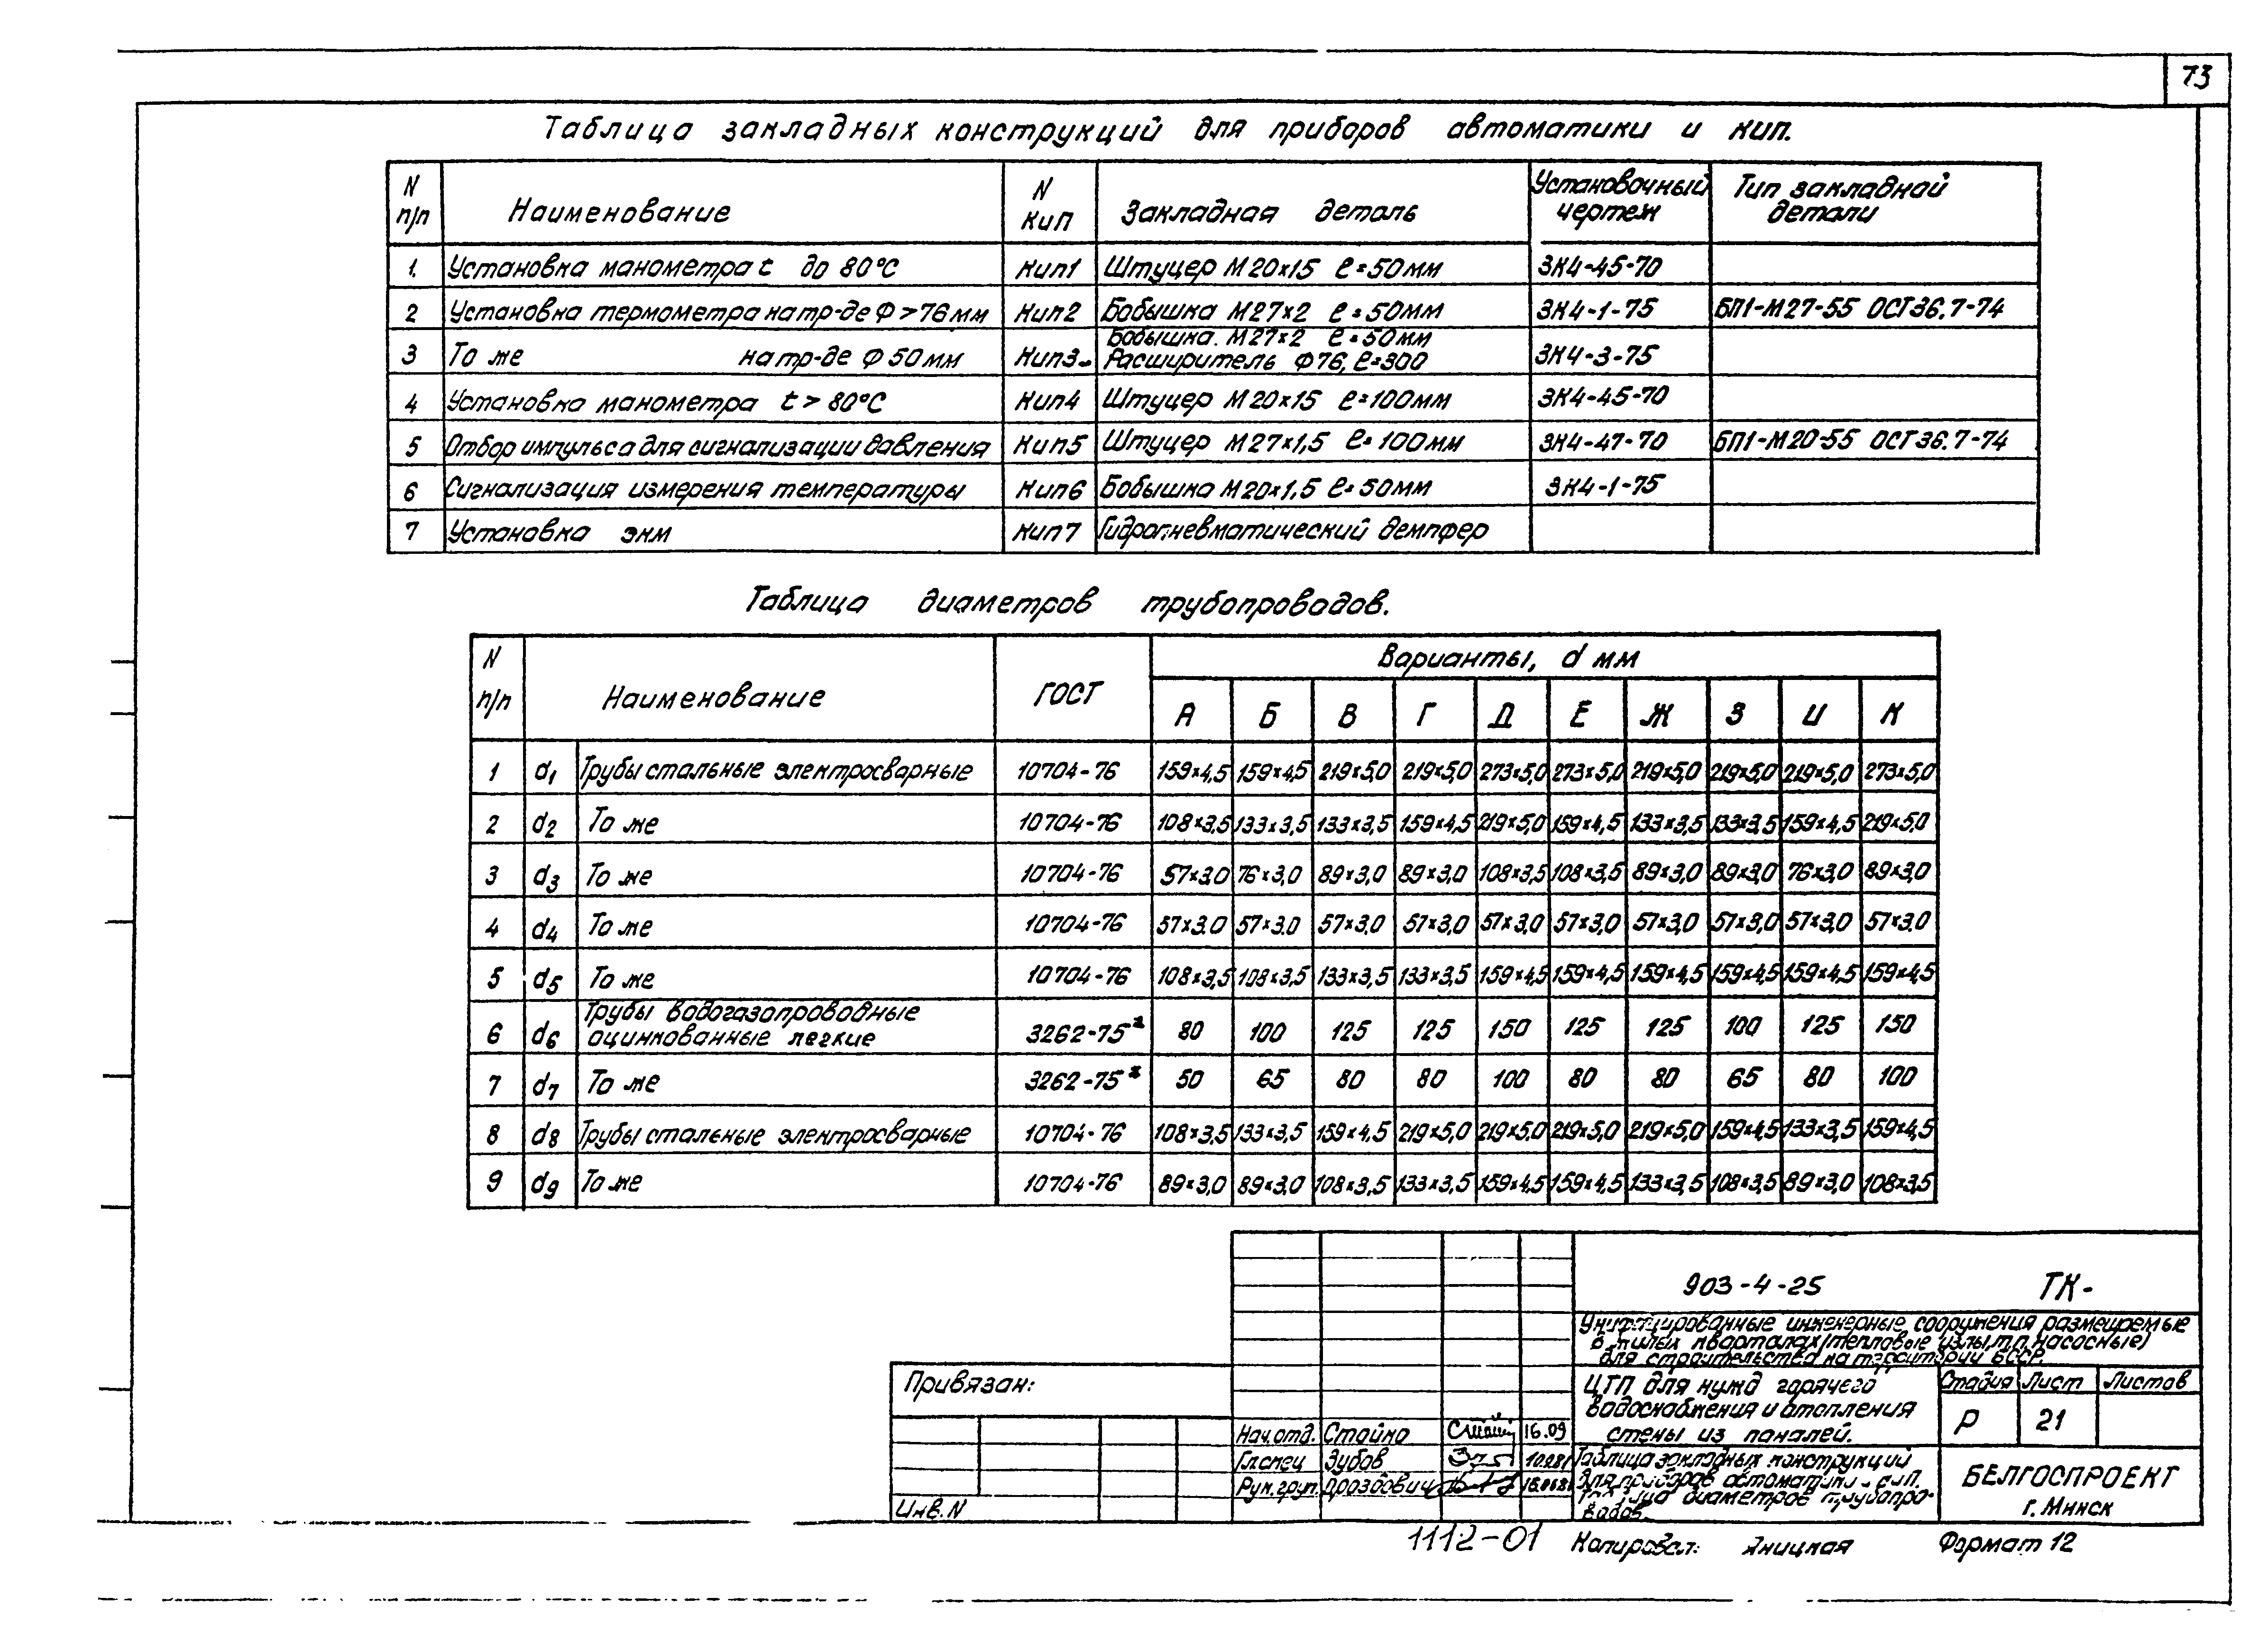 73
Таблица закладных конструкций для приборов автоматики и кип.
N п/п Наименование N Кип Закладная деталь Установочный чертеж Тип закладной детали
1. Установка манометра t до 80°С Кип1 Штуцер М20х15 ℓ=50мм ЗК4-45-70
2 Установка термометра на тр-де Ф>76мм Кип2 Бобышка М27х2 ℓ=50мм ЗК4-1-75 БП1-М27-55 ОСТ36.7-74
3 То же на тр-де Ф50мм Кип3 Бобышка. М27х2 ℓ=50мм Расширитель Ф76, ℓ=300 ЗК4-3-75
4 Установка манометра t>80°С Кип4 Штуцер М20х15 ℓ=100мм ЗК4-45-70
5 Отбор импульса для сигнализации давления Кип5 Штуцер М27х1,5 ℓ=100мм ЗК4-47-70 БП1-М20-55 ОСТ36.7-74
6 Сигнализация измерения температуры Кип6 Бобышка М20х1,5 ℓ=50мм ЗК4-1-75
7 Установка экм Кип7 Гидропневматический демпфер
Таблица диаметров трубопроводов.
N п/п Наименование ГОСТ Варианты, d мм
А Б В Г Д Е Ж З И К
1 d1 Трубы стальные электросварные 10704-76 159х4,5 159х4,5 219х5,0 219х5,0 273х5,0 273х5,0 219х5,0 219х5,0 219х5,0 273х5,0
2 d2 То же 10704-76 108х3,5 133х3,5 133х3,5 159х4,5 219х5,0 159х4,5 133х3,5 133х3,5 159х4,5 219х5,0
3 d3 То же 10704-76 57х3,0 76х3,0 89х3,0 89х3,0 108х3,5 108х3,5 89х3,0 89х3,0 76х3,0 89х3,0
4 d4 То же 10704-76 57х3.0 57х3.0 57х3,0 57х3,0 57х3,0 57х3,0 57х3,0 57х3,0 57х3,0 57х3.0
5 d5 То же 10704-76 108х3,5 108х3,5 133х3,5 133х3,5 159х4,5 159х4,5 159х4,5 159х4,5 159х4,5 159х4,5
6 d6 Трубы водогазопроводные оцинкованные легкие 3262-75* 80 100 125 125 150 125 125 100 125 150
7 d7 То же 3262-75* 50 65 80 80 100 80 80 65 80 100
8 d8 Трубы стальные электросварные 10704-76 108х3,5 133х3,5 159х4,5 219х5,0 219х5,0 219х5,0 219х5,0 159х4,5 133х3,5 159х4,5
9 d9 То же 10704-76 89х3,0 89х3,0 108х3,5 133х3,5 159х4,5 159х4,5 133х3,5 108х3,5 89х3,0 108х3,5
903-4-25 ТК-
Унифицированные инженерные сооружения размещаемые
в жилых кварталах/тепловые узлы, т.п, насосные)
для строительства на территории БССР.
Привязан:
ЦТП для нужд горячего
водоснабжения и отопления
стены из панелей.
Стадия Лист Листов
Р 21
Нач.отд. Стайно 16.09
Гл.спец Зубов
Рук.груп. Дроздович
Таблица закладных конструкций
для приборов автоматики и кип.
Таблица диаметров трубопро-
водов.
БЕЛГОСПРОЕКТ
г. Минск
Инв.N
1112-01 Копировал: Яницкая Формат 12